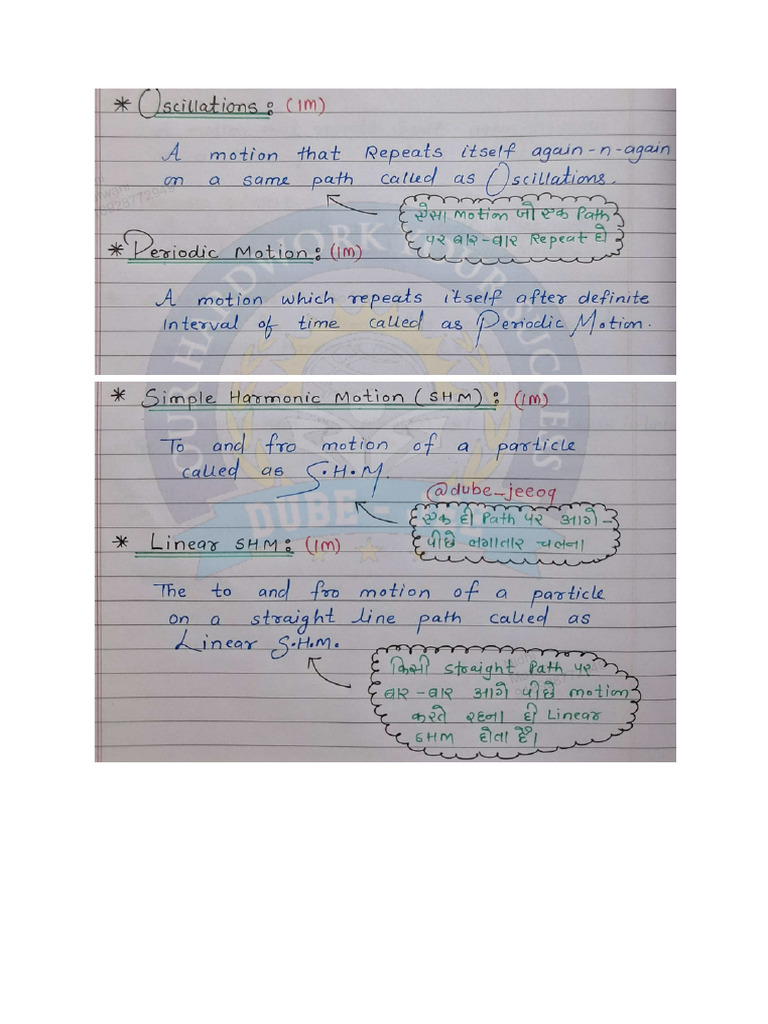 * Oscillations: (1M)
A motion that Repeats itself again-n-again
on a same path called as Oscillations.
ऐसा motion जो एक Path
पर बार-बार Repeat हो
* Periodic Motion: (1M)
A motion which repeats itself after definite
interval of time called as Periodic Motion.
* Simple Harmonic Motion (SHM): (1M)
To and fro motion of a particle
called as S.H.M.
@dube_jeeoq
एक ही Path पर आगे-
पीछे लगातार चलना
* Linear SHM: (1M)
The to and fro motion of a particle
on a straight line path called as
Linear S.H.M.
किसी straight Path पर
बार-बार आगे पीछे motion
करते रहना ही Linear
SHM होता है।
YOUR HARDWORK YOUR SUCCESS
DUBE -